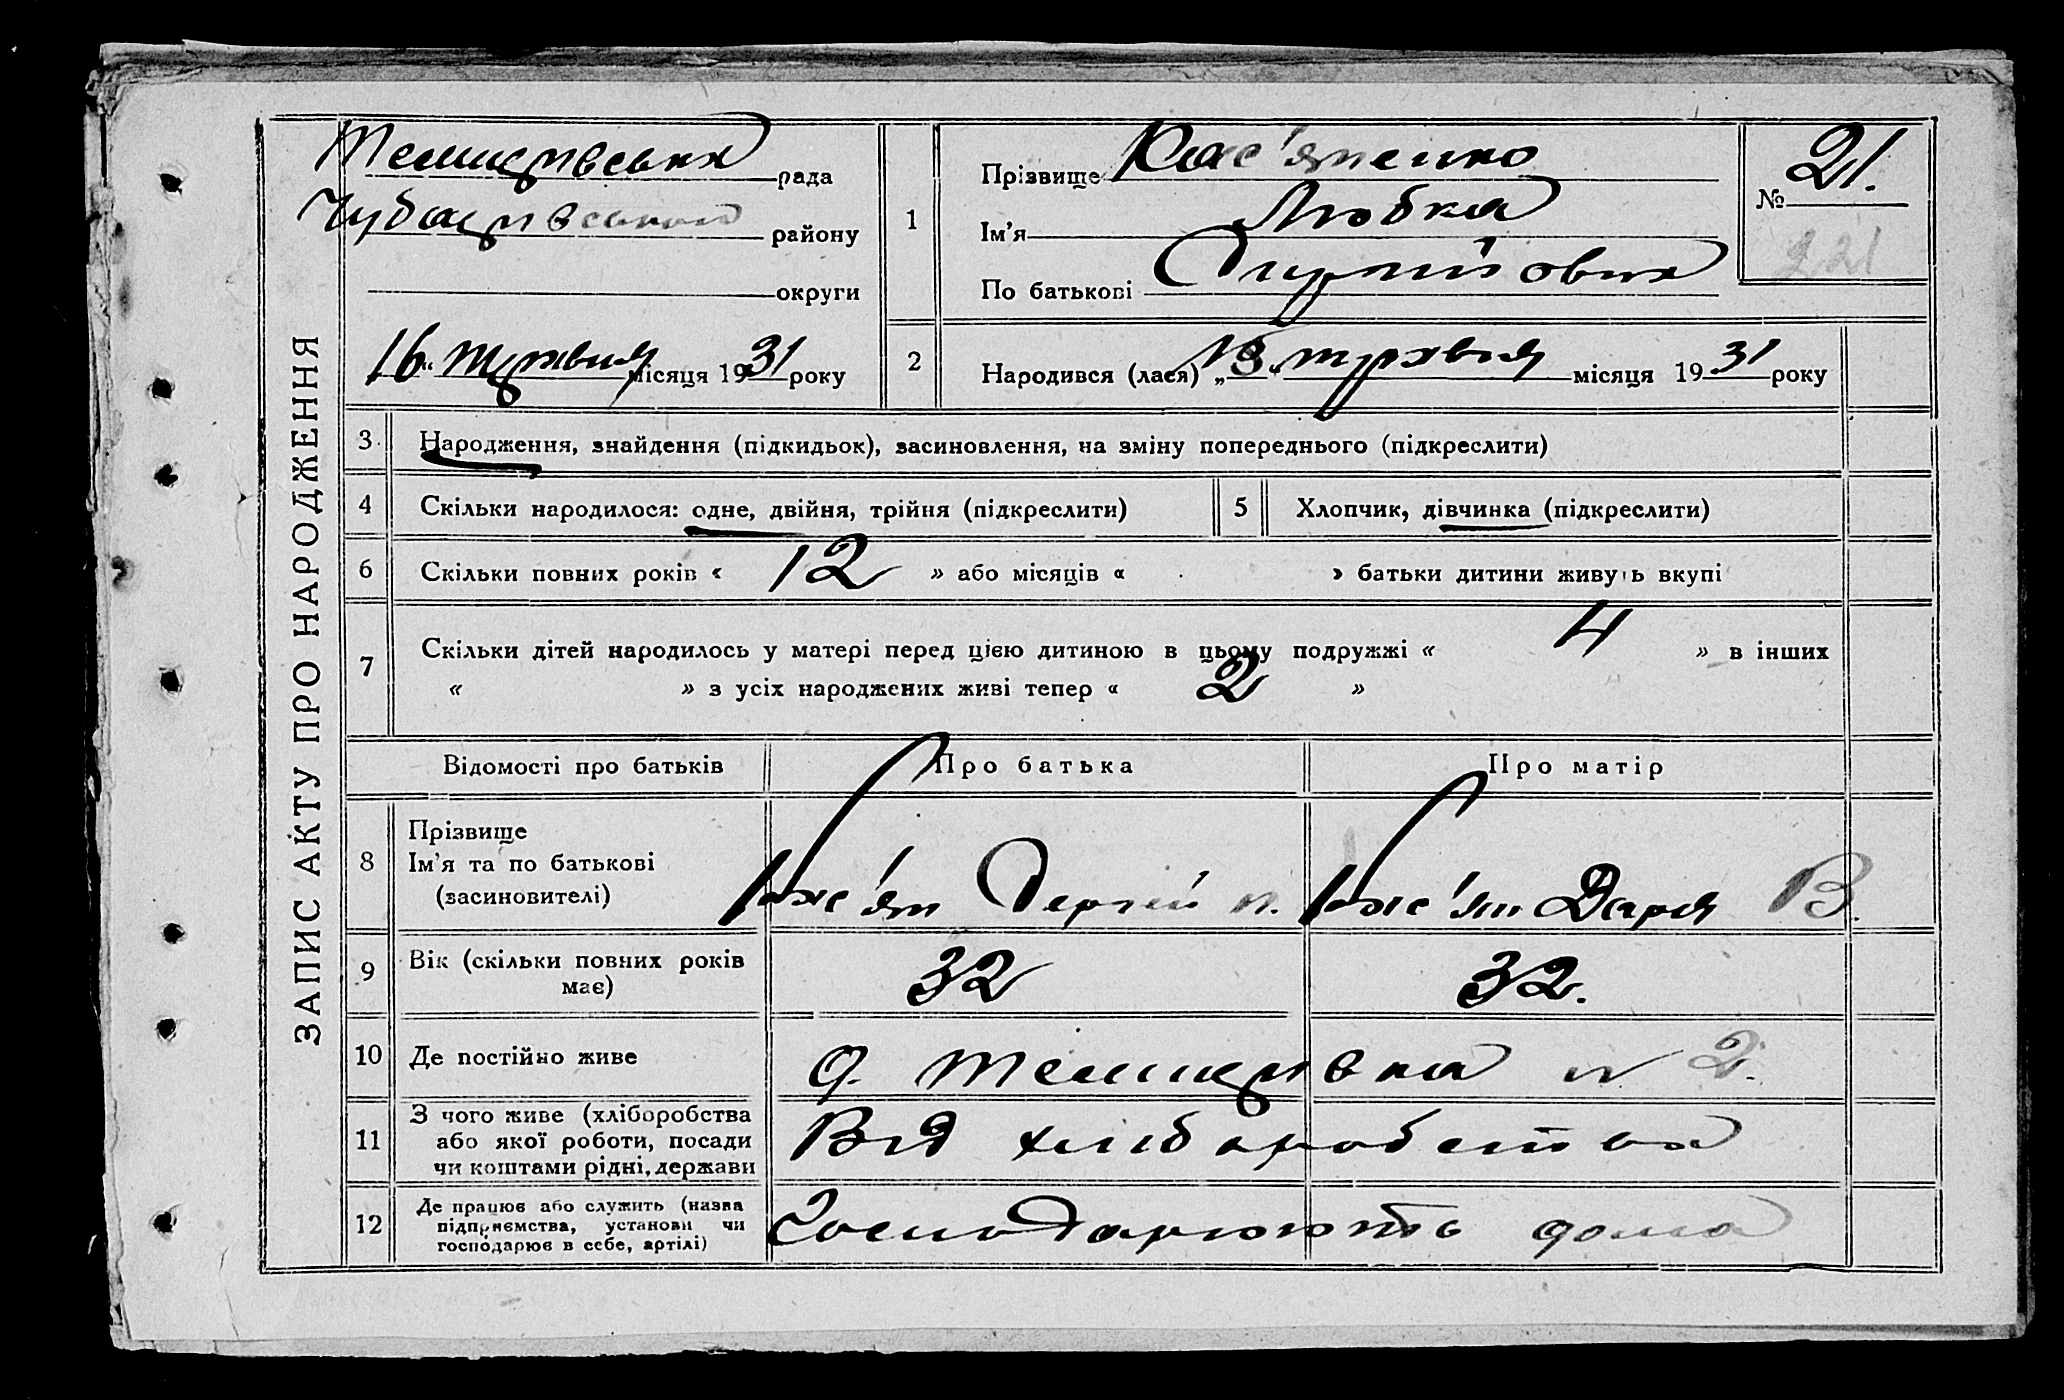 ЗАПИС АКТУ ПРО НАРОДЖЕННЯ
рада
району
округи
16 " травня місяця 1931 року
1
Прізвище Кас'яненко
Ім'я Любка
По батькові
№ 21.
221
2
Народився (лася) „ " травня місяця 1931 року
3 Народження, знайдення (підкидьок), засиновлення, на зміну попереднього (підкреслити)
4 Скільки народилося: одне, двійня, трійня (підкреслити)
5 Хлопчик, дівчинка (підкреслити)
6 Скільки повних років « 12 » або місяців « » батьки дитини живуть вкупі
7 Скільки дітей народилось у матері перед цією дитиною в цьому подружжі « 4 » в інших
« » з усіх народжених живі тепер « 2 »
Відомості про батьків
Про батька
Про матір
8
Прізвище
Ім'я та по батькові
(засиновителі)
Кас'ян Сергій п.
Кас'ян Дарья В.
9
Вік (скільки повних років
має)
32
32.
10 Де постійно живе
11
З чого живе (хліборобства
або якої роботи, посади
чи коштами рідні, держави
Від хліборобства
12
Де працює або служить (назва
підприємства, установи чи
господарює в себе, артілі)
Господарюють дома